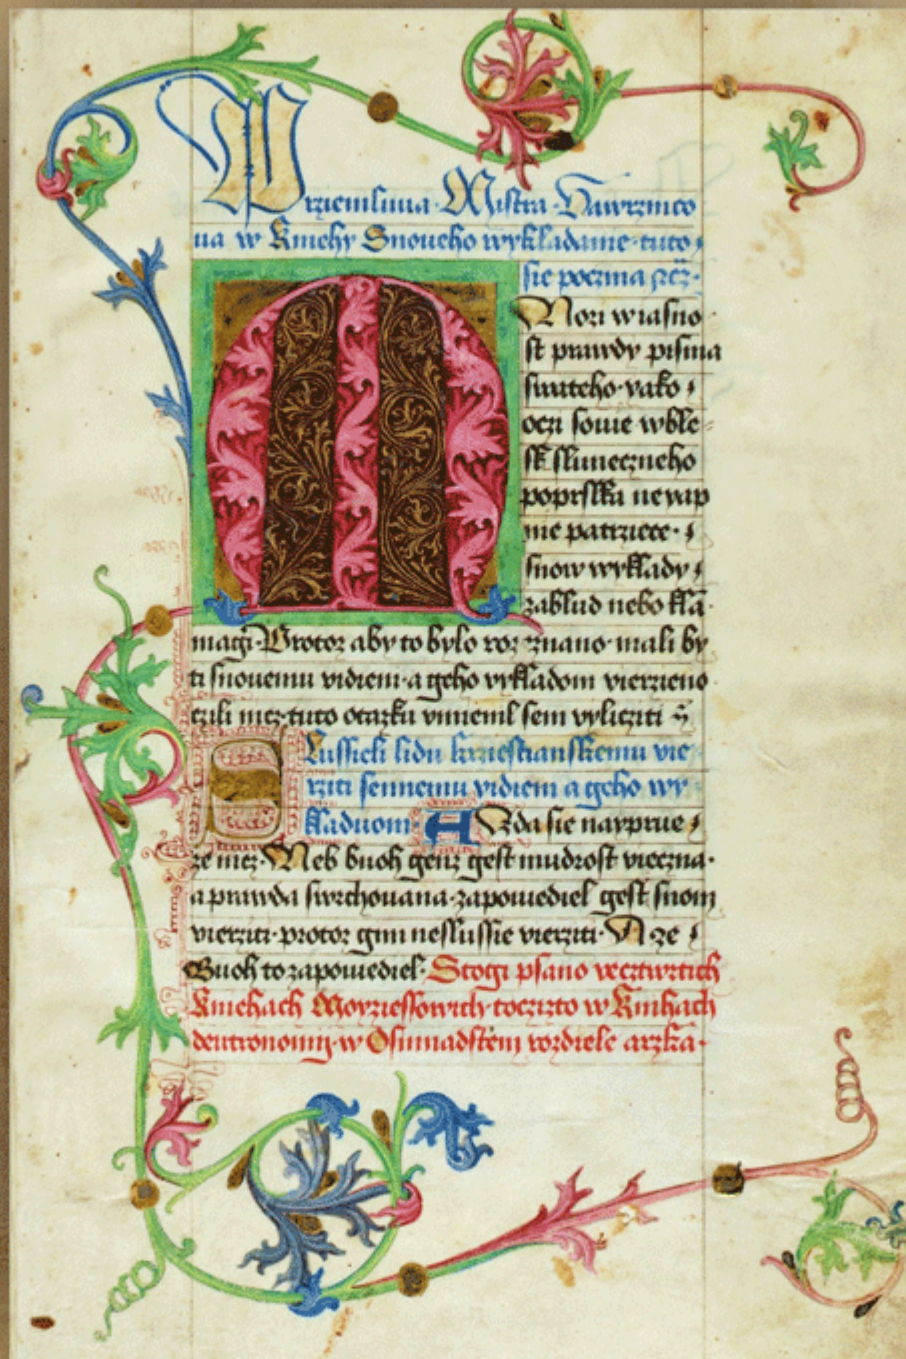 Prziemluua Mistra Wawrzinco
ua w Kniehy Snoueho wykladanie tuto
sie poczina rzecz
MNozi w iasno
st prawdy pisma
swateho yako
oczi sowie w ble
sk sluneczneho
poprslku neyap
nie patrziece
snow wyklady
zablud nebo kla
magi Protoz aby to bylo roz eznano mali by
ti snouemu vidieni a geho vykladom vierzieno
czili nicz tuto otazku vmienil sem vylicziti
Slussieli lidu krziestianskemu vie
rziti sennemu vidieni a geho wy
kladuom A Zda sie nayprue
ze nicz Neb buoh genz gest mudrost vieczna
a prawda swrchouana zapouiediel gest snom
vierziti protoz gim neslussie vierziti A ze
Buoh to zapouiediel Stogi psano we cztwrtich
Kniehach Moyziessowich toczizto w Knihach
deutronomy w Osmnadstem rozdiele arzka